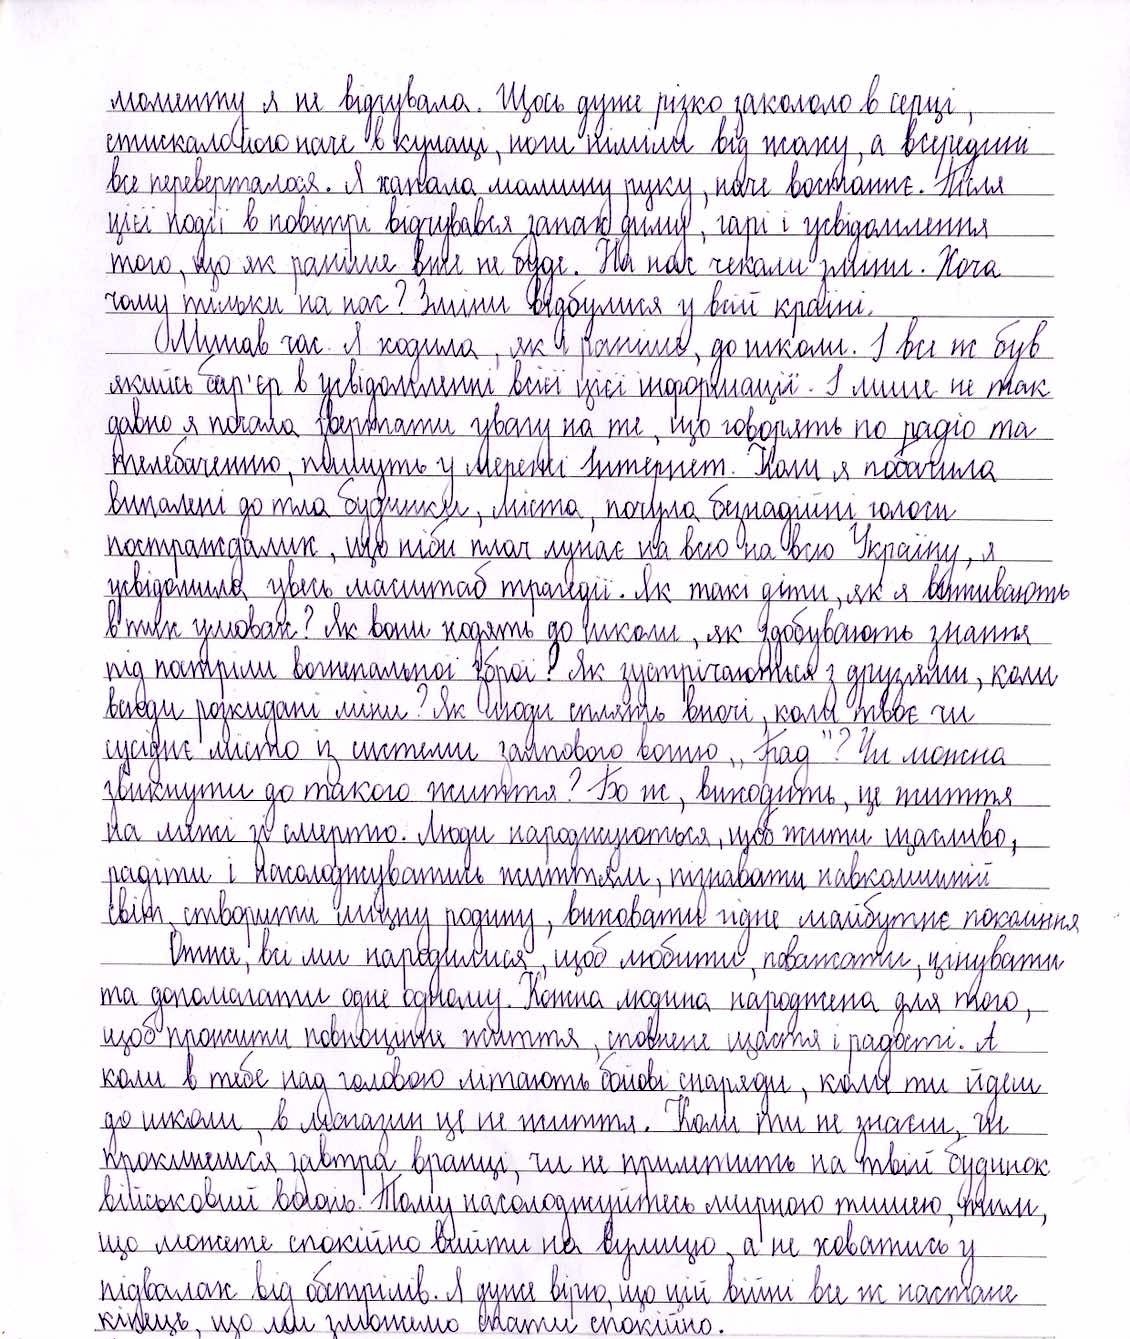 моменту я не відчувала. Щось дуже різко закололо в серці,
стискало його наче в кулаці, ноги німіли від жаху, а всередині
все переверталося. Я хапала мамину руку, наче востаннє. Після
цієї події в повітрі відчувався запах диму, гарі і усвідомлення
того, що як раніше вже не буде. На нас чекали зміни. Хоча
чому тільки на нас? Зміни відбулися у всій країні.
Минав час. Я ходила, як і раніше, до школи. І все ж був
якийсь бар'єр в усвідомленні всієї цієї інформації. І лише не так
давно я почала звертати увагу на те, що говорять по радіо та
телебаченню, пишуть у мережі Інтернет. Коли я побачила
випалені до тла будинки, міста, почула безнадійні голоси
постраждалих, що ніби плач лунає на всю на всю Україну, я
усвідомила увесь масштаб трагедії. Як такі діти, як я виживають
в тих умовах? Як вони ходять до школи, як здобувають знання
під постріли вогнепальної зброї? Як зустрічаються з друзями, коли
всюди розкидані міни? Як люди сплять вночі, коли твоє чи
сусіднє місто із системи залпового вогню „Град"? Чи можна
звикнути до такого життя? Бо ж, виходить, це життя
на межі зі смертю. Люди народжуються, щоб жити щасливо,
радіти і насолоджуватись життям, пізнавати навколишній
світ, створити міцну родину, виховати гідне майбутнє покоління
Отже, всі ми народилися, щоб любити, поважати, цінувати
та допомагати одне одному. Кожна людина народжена для того,
щоб прожити повноцінне життя, сповнене щастя і радості. А
коли в тебе над головою літають бойові снаряди, коли ти йдеш
до школи, в магазин це не життя. Коли ти не знаєш, чи
прокинешся завтра вранці, чи не прилетить на твій будинок
військовий вогонь. Тому насолоджуйтесь мирною тишею, тим,
що можете спокійно вийти на вулицю, а не ховатись у
підвалах від обстрілів. Я дуже вірю, що цій війні все ж настане
кінець, що ми зможемо спати спокійно.